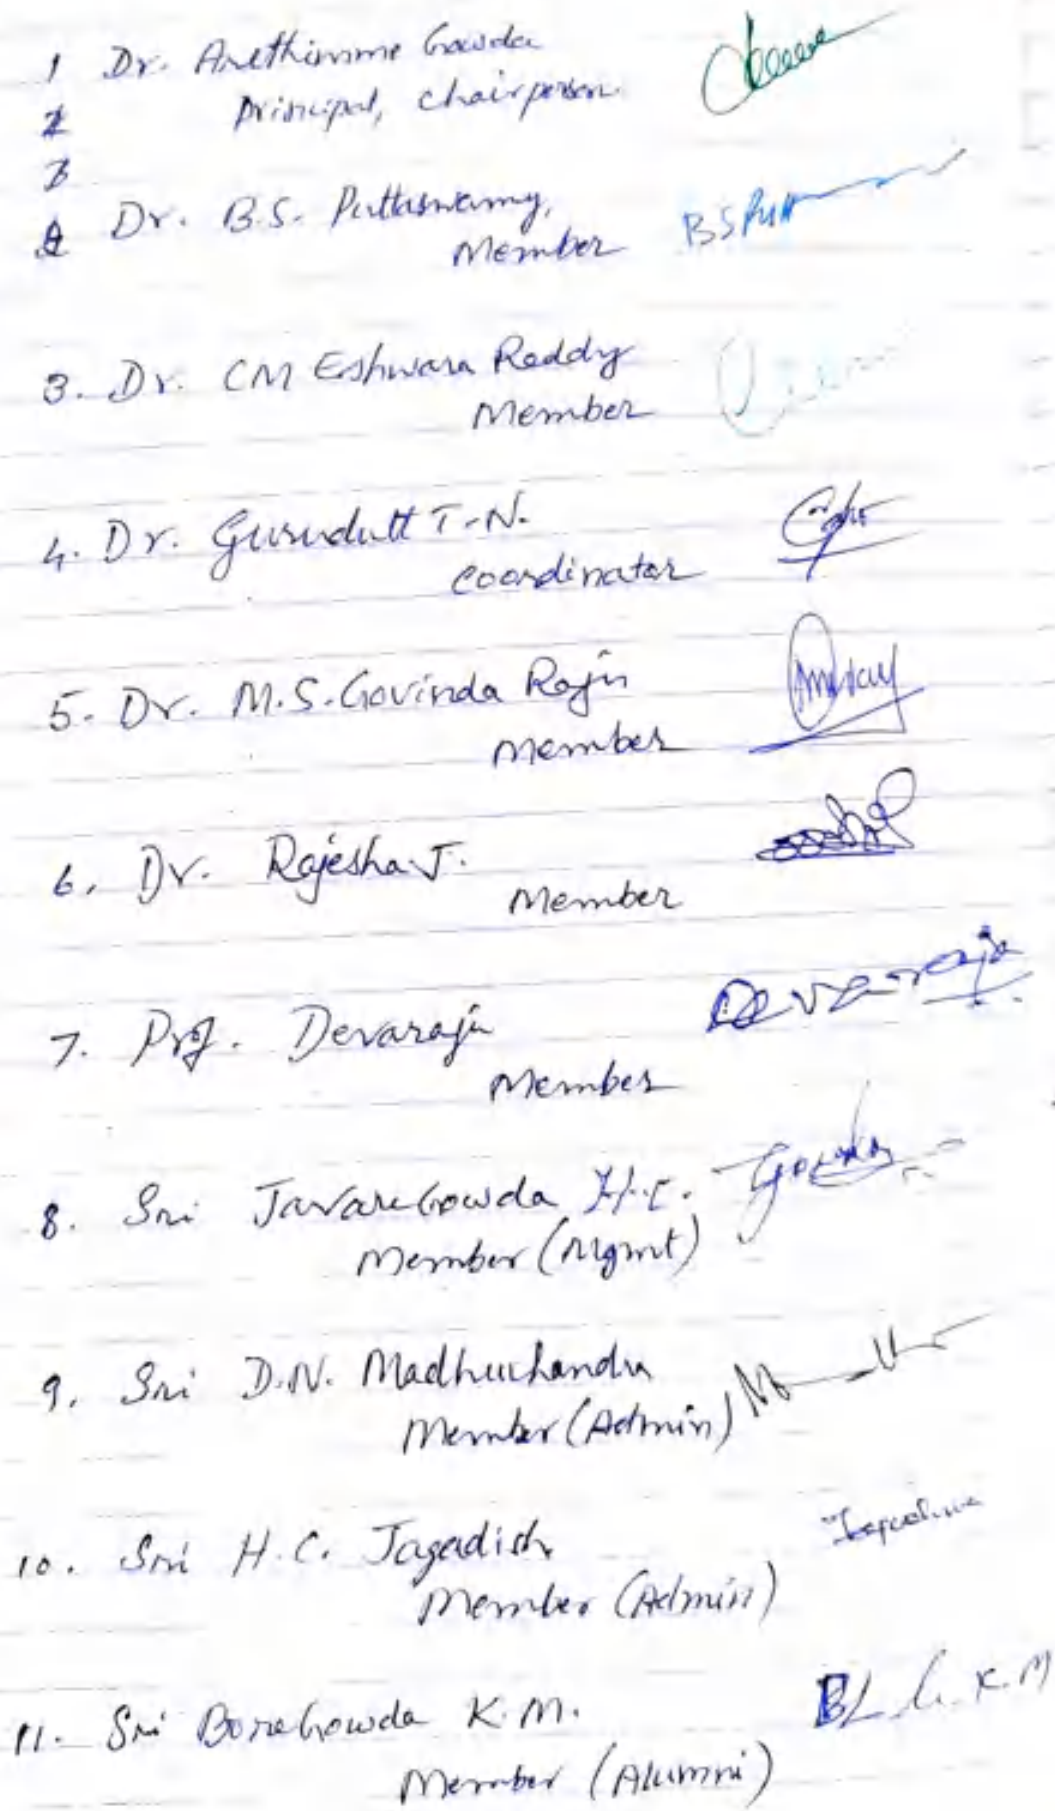 1 Dr. Arethimme Gowda
2 Principal, Chairperson
3
Dr. B.S. Puttaswamy,
Member BSPutt
3. Dr. CM Eshwara Reddy
Member
4. Dr. Gurudutt T.N.
coordinator
5. Dr. M.S. Govinda Raju
Member
6. Dr. Rajesha J.
Member
7. Prof. Devaraju Devaraja
Member
8. Sri JavareGowda H.C. Gowda
Member (Mgmt)
9. Sri D.N. Madhuchandra
Member (Admin)
10. Sri H.C. Jagadish
Member (Admin)
11. Sri BoreGowda K.M. K.M
Member (Alumni)